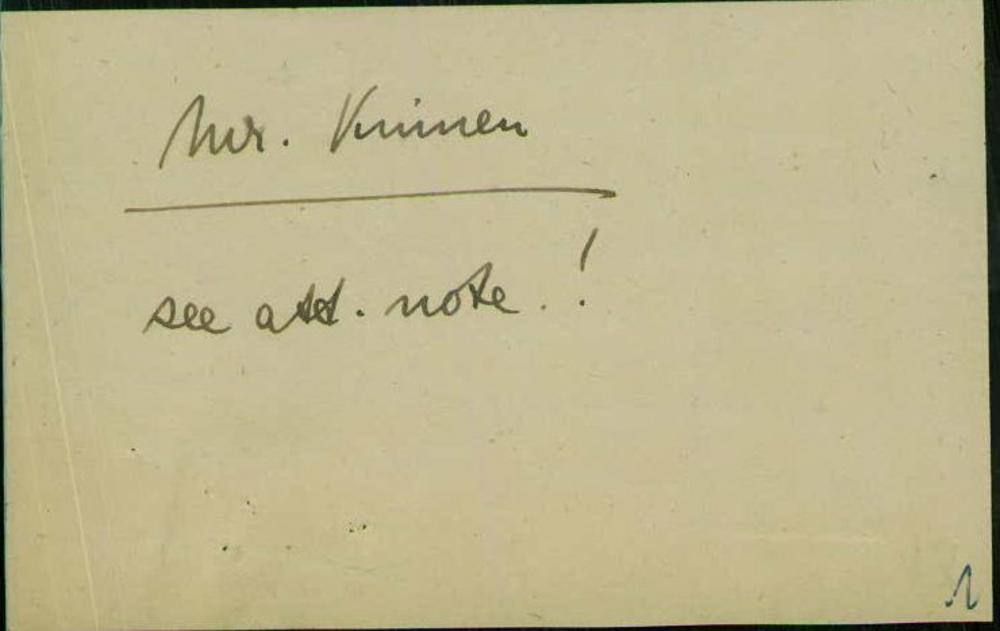 Mr. Kminen
see att. note.!
1